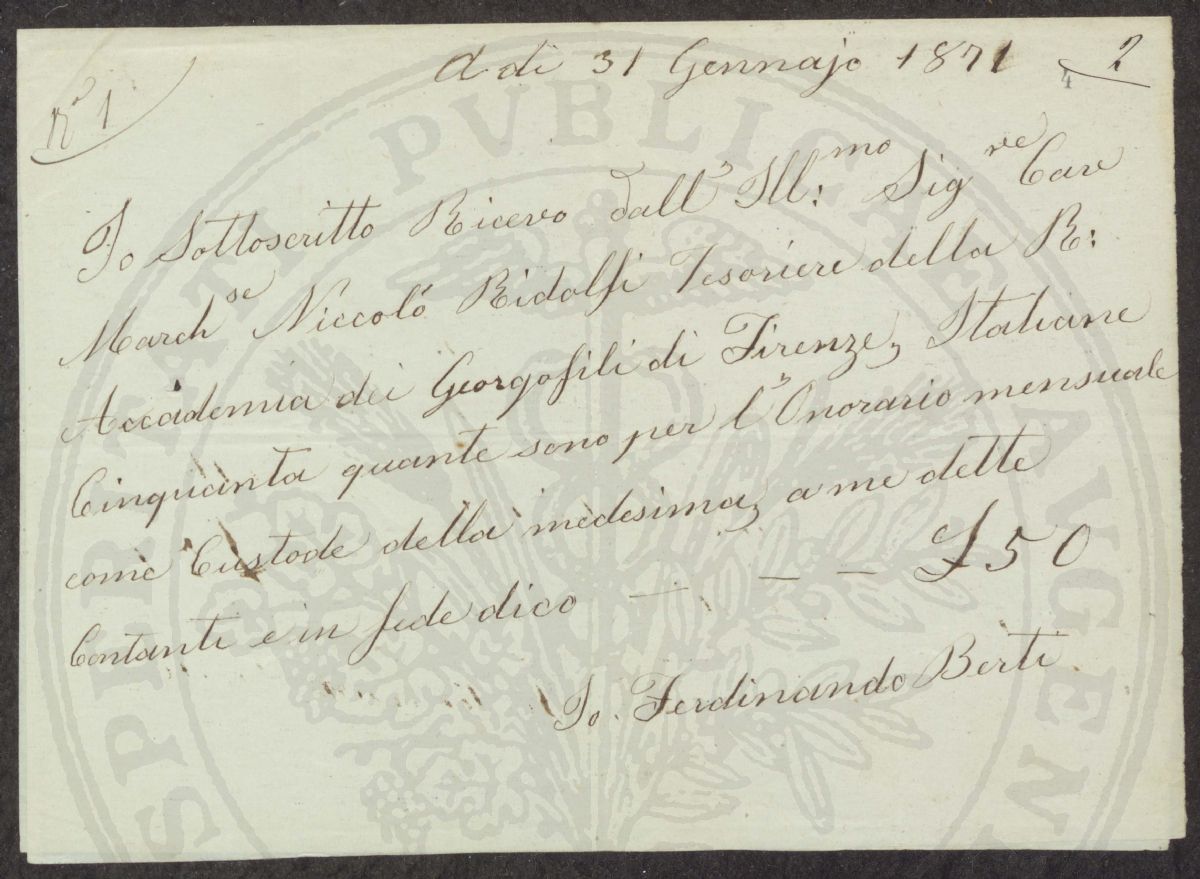 N.º 1
A dì 31 Gennajo 1871
2
4
Io Sottoscritto Ricevo dall' Ill:mo Sigre Cav
Marchse Niccoló Ridolfi Tesoriere della R:
Accademia dei Georgofili di Firenze, Italiane
Cinquanta quante sono per l'Onorario mensuale
come Custode della medesima, a me dette
Contanti e in fede dico — — — £ 50
Io. Ferdinando Berti
PROSPERITATI PUBLICAE AUGEN